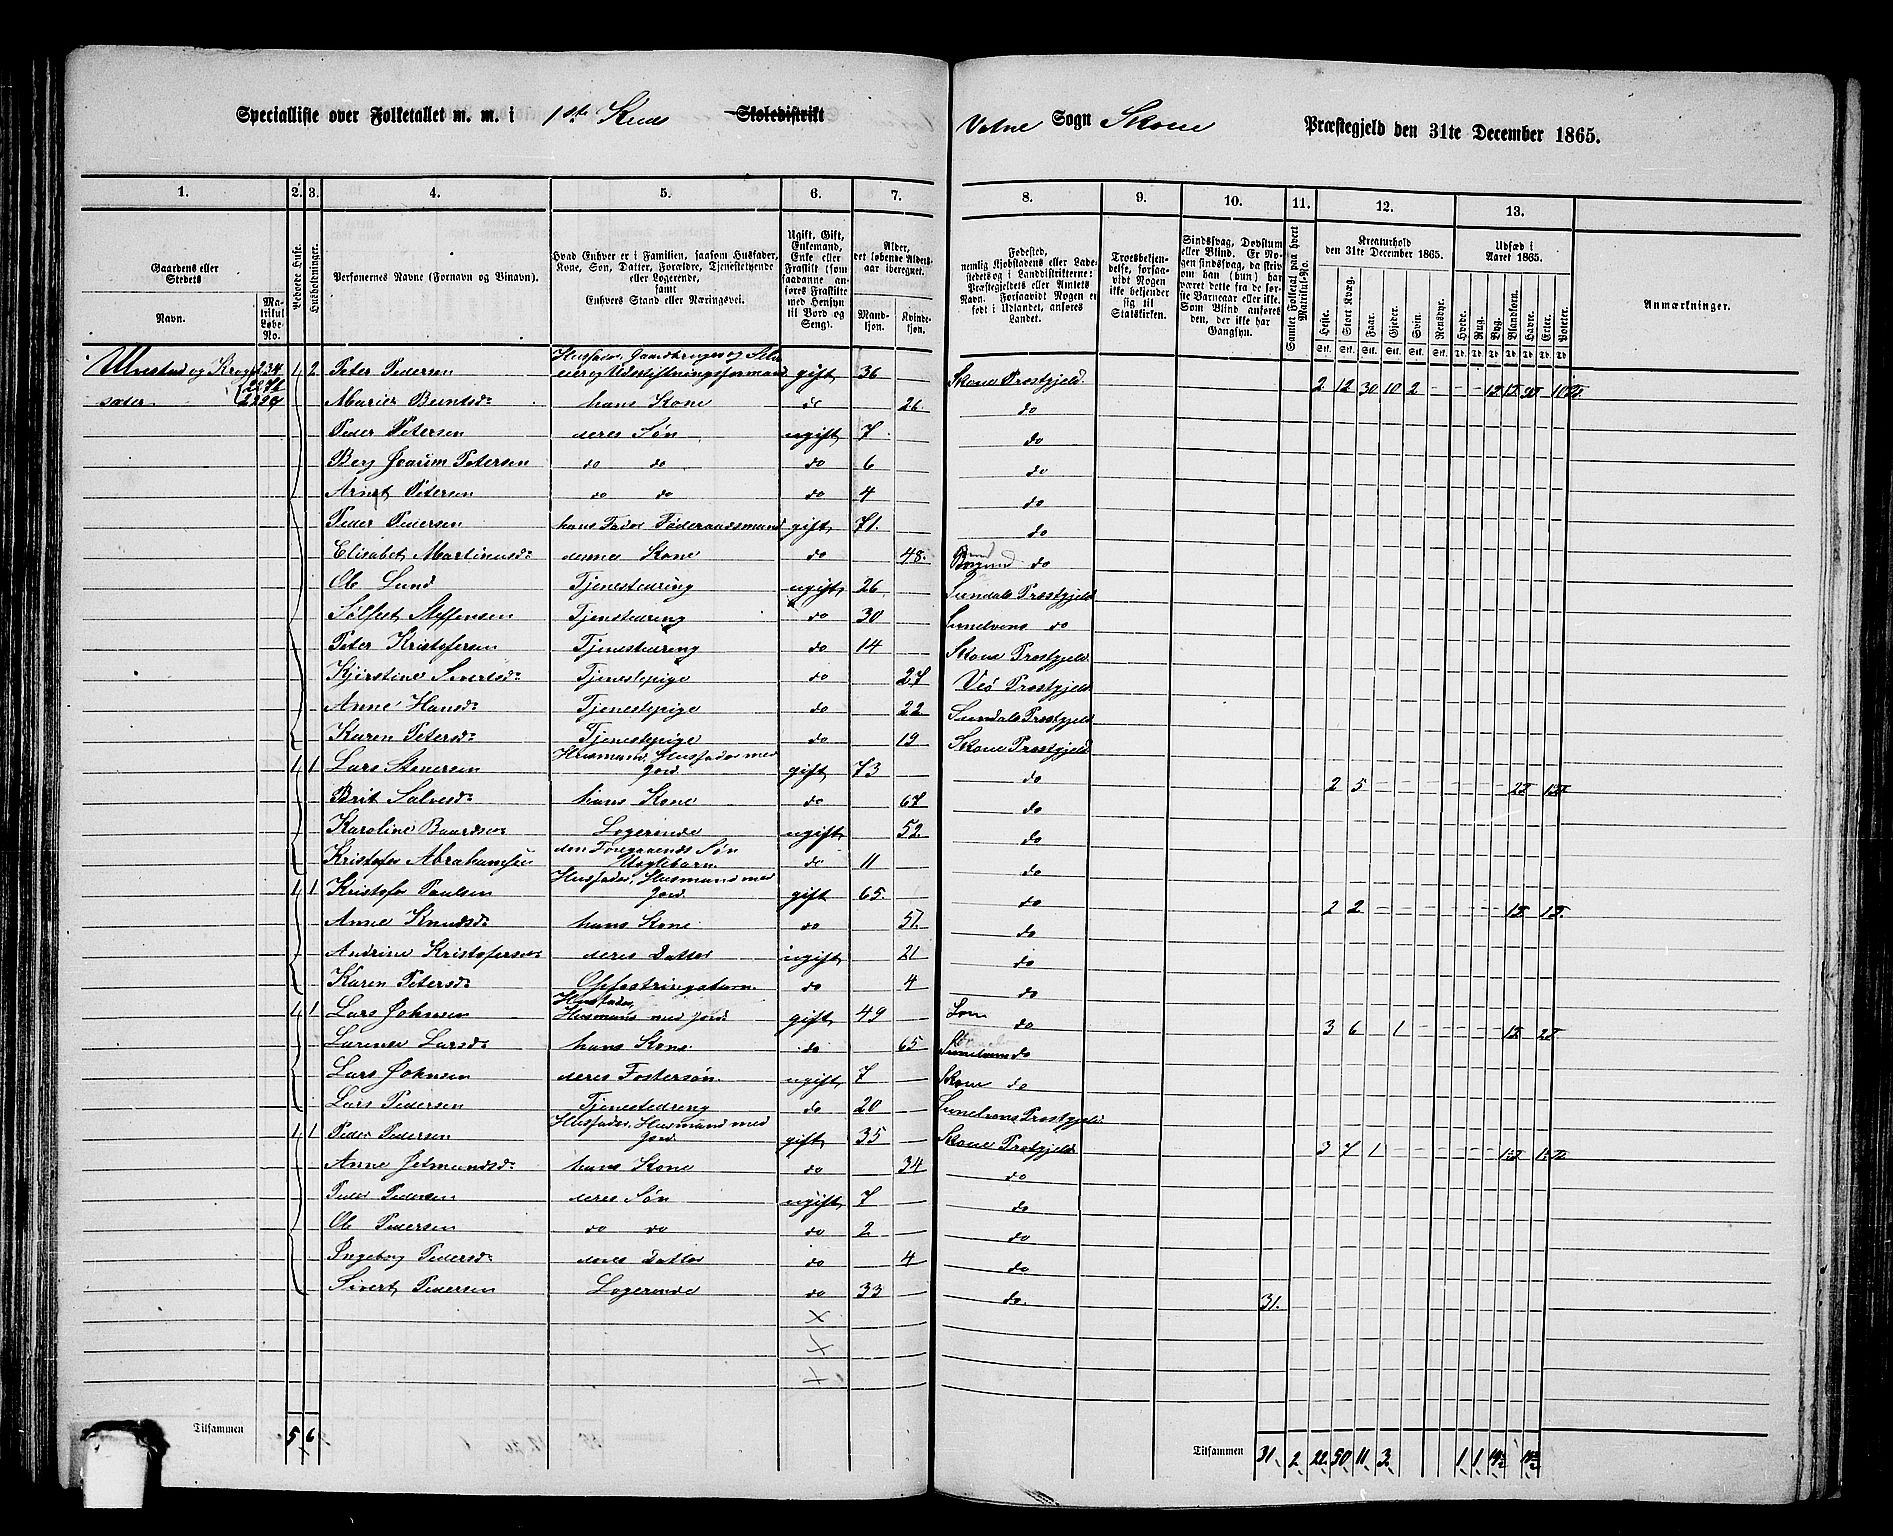 Specialliste over Folketallet m. m. i 1ste Kreds Skoledistrikt Vatne Sogn Skoue Præstegjeld den 31te December 1865.
1. 2. 3. 4. 5. 6. 7. 8. 9. 10. 11. 12. 13.
Gaardens eller Stedets Navn. Matrikul Løbe-No.
Beboede Huse.
Husholdninger.
Personernes Navne (Fornavn og Binavn).
Hvad Enhver er i Familien, saasom Husfader, Kone, Søn, Datter, Forældre, Tjenestetyende eller Logerende, samt Enhvers Stand eller Næringsvei.
Ugift, Gift, Enkemand, Enke eller Fraskilt (som saadanne anføres Fraskilte med Hensyn til Bord og Seng).
Alder, det løbende Aldersaar iberegnet.
Mandkjøn. Kvindekjøn.
Fødested, nemlig Kjøbstadens eller Ladestedets og i Landdistrikterne: Præstegjeldets eller Amtets Navn. Forsaavidt Nogen er født i Udlandet, anføres Landet.
Troesbekjendelse, forsaavidt Nogen ikke bekjender sig til Statskirken.
Sindssvag, Døvstum eller Blind. Er Nogen sindssvag, da skrives om han (hun) har været dette fra de første Barneaar eller ikke. Som Blind anføres den, der ikke har Gangsyn.
Samlet Folketal paa hvert Matrikul-No.
Kreaturhold den 31te December 1865.
Heste. Stort Kvæg. Faar. Gjeder. Svin. Rensdyr.
Udsæd i Aaret 1865.
Hvede. Rug. Byg. Blandkorn. Havre. Erter. Poteter.
Anmærkninger.
Husfader, Gaardbruger og Selv
234 1 2 Peter Pedersen eier og Udskiftningsformand gift 36 Skoue Prestgjeld 2 12 30 10 2
sæter Marie Berntsd. hans Kone do 26 do
Peder Petersen deres Søn ugift 7 do
Berg Joacim Petersen do do do 6 do
Arnt Petersen do do do 4 do
Peder Pedersen hans Fader Føderaadsmand gift 71 do
Elisabet Martinusd. dennes Kone do 48 do
Ole Lund Tjenestedreng ugift 26 Sundals Prestgjeld
Sølfest Steffensen Tjenestedreng do 30 Sunelvens do
Peter Kristofersen Tjenestedreng do 14 Skoue Prestgjeld
Kjerstine Sivertsd. Tjenestepige do 27 Veø Prestgjeld
Anne Hansd. Tjenestepige do 22 Sundals Prestgjeld
Karen Petersd. Tjenestepige do 19 Skoue Prestgjeld
Husmand, Husfader med
1 1 Lars Stenersen Jord gift 73 do 2 5
Brit Salvesd. hans Kone do 67 do
Karoline Baardsd. Logerende ugift 52 do
den Foregaaends Søn
Kristofer Abrahamsen Uegtebarn do 11 do
Husfader, Husmand med
1 1 Kristofer Paulsen Jord gift 65 do 2 2
Anne Knudsd. hans Kone do 51 do
Andrine Kristofersd. deres Datter ugift 21 do
Karen Petersd. Opfostringsbarn do 4 do
Husfader,
1 1 Lars Johnsen Husmand med Jord gift 49 do 3 6 1
Larsd. hans Kone do 65 do
Lars Johnsen deres Fostersøn ugift 7 Skoue do
Lars Pedersen Tjenestedreng do 20 Sunelvens Prestgjeld
Husfader, Husmand med
1 1 Peder Pedersen Jord gift 35 Skoue Prestgjeld 3 7 1
Anne Jetmundsd. hans Kone do 34 do
Peder Pedersen deres Søn ugift 7 do
Ole Pedersen do do do 2 do
Ingeborg Pedersd. deres Datter do 4 do
Sivert Pedersen Logerende do 33 do 31.
Tilsammen 5 6 Tilsammen 31 2 22 50 11 3 1 1